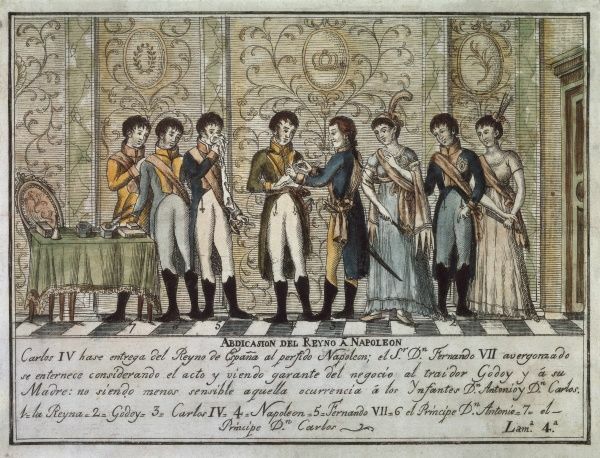 7 6 5 4 3 2 1
ABDICASION DEL REYNO A NAPOLEON
Carlos IV hase entrega del Reyno de España al perfido Napoleon; el S.r D.n Fernando VII avergonzado
se enternece considerando el acto y viendo garante del negocio al traidor Godoy y á su
Madre: no siendo menos sensible aquella ocurrencia á los Ynfantes D.n Antonio y D.n Carlos.
1= la Reyna= 2= Godoy= 3= Carlos IV= 4= Napoleon= 5= Fernando VII= 6 el Principe D.n Antonio= 7= el=
Principe D.n Carlos
Lam.a 4.a